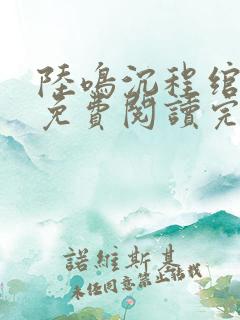 陸鳴沉程綰
免費閱讀完
諾維斯基
未經同意禁止轉載